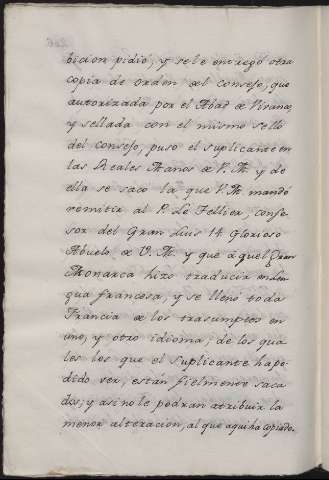 bicion pidiò, y se le entregó otra
copia de orden del consejo, que
autorizada por el Abad de Vivanco,
y sellada con el mismo sello
del consejo, puso el suplicante en
las Reales Manos de V. M. y de
ella se sacó la que V. M. mandó
remitir al P. Le Tellier, confe-
sor del Gran Luis 14 Glorioso
Abuelo de V. M. y que aquel Gran
Monarca hizo traducir en Len-
gua francesa, y se llenó toda
Francia de los trasumptos en
uno, y otro idioma; de los qua-
les los que el suplicante ha po-
dido ver, están fielmente saca
dos; y asi no le podran atribuir la
menor alteracion, al que aqui ha copiado.